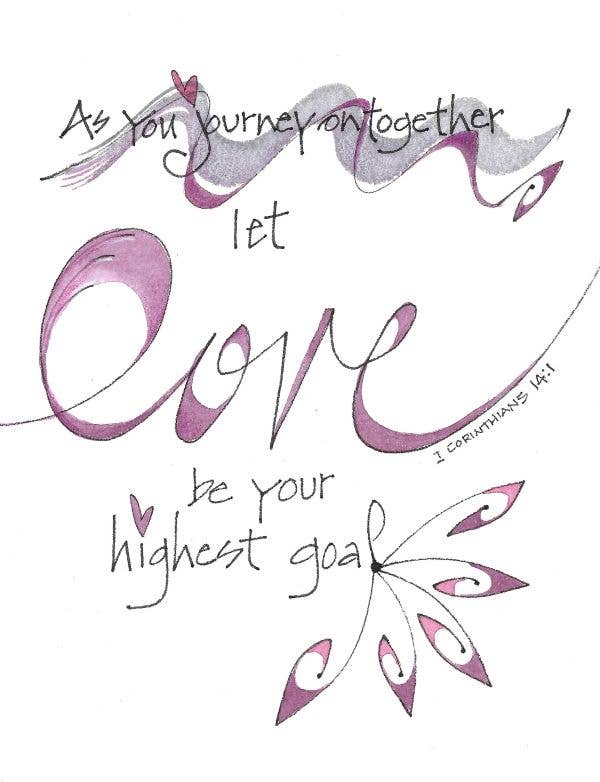 As you journey on together
let
love
I CORINTHIANS 14:1
be your
highest goal